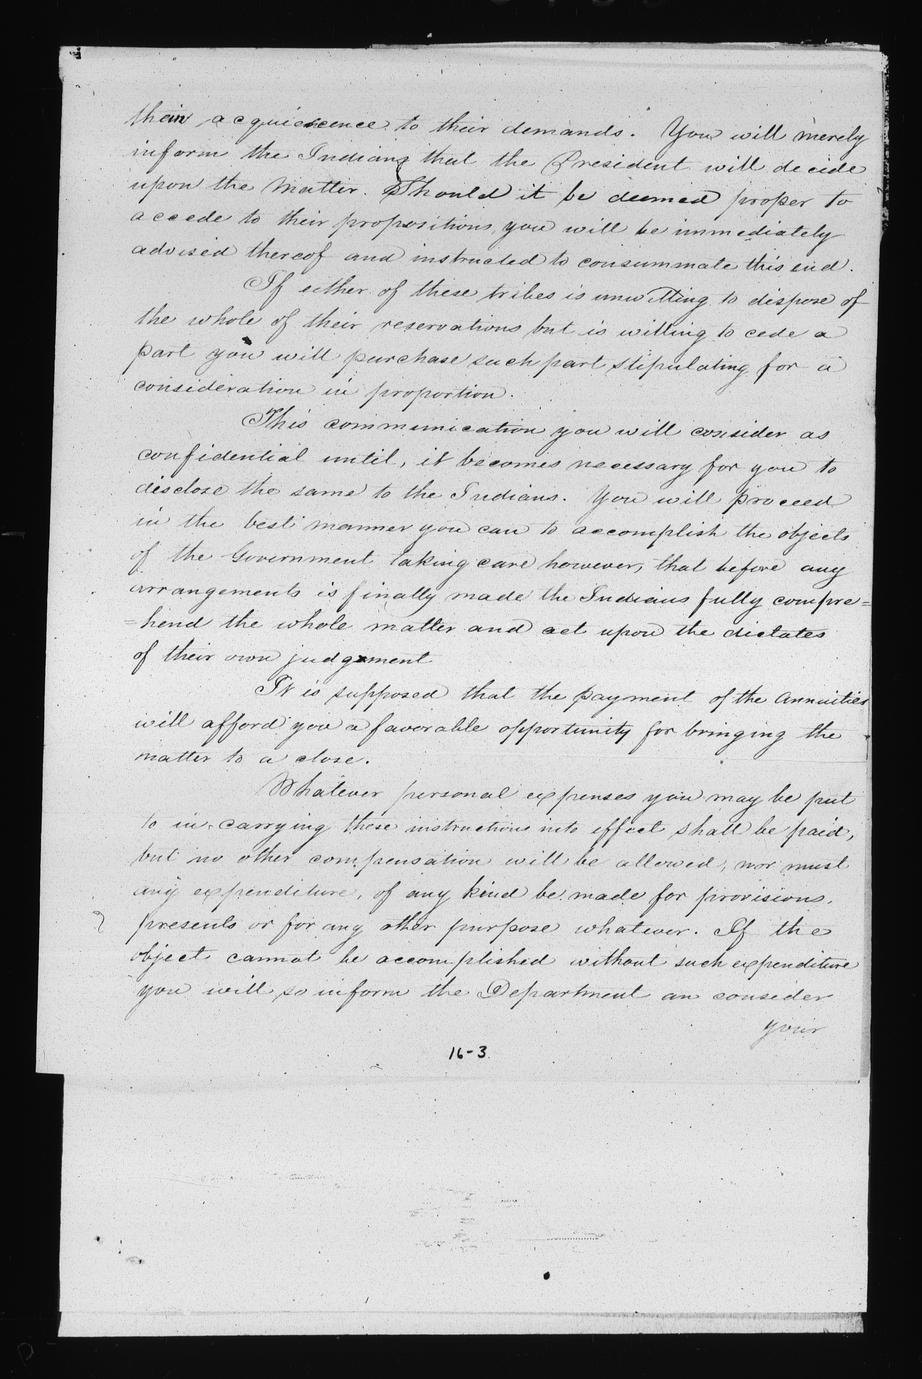 their acquiescence to their demands. You will merely
inform the Indians that the President will decide
upon the matter. Should it be deemed proper to
accede to their propositions, you will be immediately
advised thereof and instructed to consummate this end.
If either of these tribes is unwilling to dispose of
the whole of their reservations but is willing to cede a
part you will purchase such part stipulating for a
consideration in proportion.
This communication you will consider as
confidential until, it becomes necessary for you to
disclose the same to the Indians. You will proceed
in the best manner you can to accomplish the objects
of the Government taking care however, that before any
arrangements is finally made the Indians fully compre=
=hend the whole matter and act upon the dictates
of their own judgment
It is supposed that the payment of the annuities
will afford you a favorable opportunity for bringing the
matter to a close.
Whatever personal expenses you may be put
to in carrying these instructions into effect shall be paid,
but no other compensation will be allowed, nor must
any expenditure, of any kind be made for provisions,
presents or for any other purpose whatever. If the
object cannot be accomplished without such expenditure
you will so inform the Department an consider
your
16-3